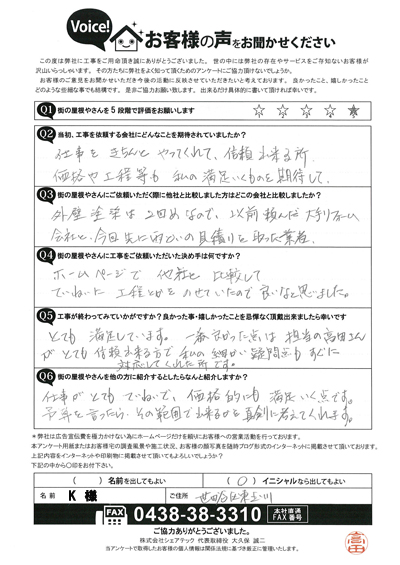 Voice!
お客様の声をお聞かせください
この度は弊社に工事をご用命頂き誠にありがとうございました。世の中には弊社の存在やサービスをご存知ないお客様が
沢山いらっしゃいます。その方たちに弊社をよく知って頂くためのアンケートにご協力頂けないでしょうか。
お客様のご意見をお聞かせいただき今後の活動に反映させていただきたいと考えております。良かったこと、嬉しかったこと
どのような些細な事でも結構です。是非ご協力お願い致します。出来るだけ具体的に書いて頂ければ幸いです。
Q1 街の屋根やさんを5段階で評価をお願いします ☆ ☆ ☆ ☆ ★
Q2 当初、工事を依頼する会社にどんなことを期待されていましたか？
仕事をきちんとやってくれて、信頼出来る所
価格や工程等も 私の満足いくものを期待して。
Q3 街の屋根やさんにご依頼いただく際に他社と比較しました方はどこの会社と比較しましたか？
外壁塗装は2回めなので、以前頼んだ大手リフォーム
会社と、今回先に雨といの見積りを取った業者。
Q4 街の屋根やさんに工事をご依頼いただいた決め手は何ですか？
ホームページで 他社と 比較して
ていねいに 工程とかをのせていたので良いなと思いました。
Q5 工事が終わってみていかがですか？良かった事・嬉しかったことを忌憚なく頂戴出来ましたら幸いです
とても 満足しています。一番良かった点は 担当の高田さん
がとても信頼出来る方で私の細かい疑問点もすぐに
対応してくれた所です。
Q6 街の屋根やさんを他の方に紹介するとしたらなんと紹介しますか？
仕事がとても ていねいで、価格的にも 満足いく点です。
予算を言ったら、その範囲で出来るかを真剣に考えてくれます。
＊弊社は広告宣伝費を極力かけない為にホームページだけを頼りにお客様への営業活動を行っております。
本アンケート用紙またはお客様宅の調査風景や施工状況、お客様の顔写真を随時ブログ形式のインターネットに掲載させて頂いております。
上記内容をインターネットや印刷物に掲載させて頂いてもよろしいでしょうか？
下記の中から〇印をお付下さい。
（　）名前を出してもよい （○）イニシャルなら出してもよい
名前 K 様 ご住所 世田谷区東玉川
FAX 0438-38-3310 本社直通 FAX番号
ご協力ありがとうございました。
株式会社シェアテック 代表取締役 大久保 誠二
当アンケートで取得したお客様の個人情報は関係法規に基づき厳正に管理いたします。
高田